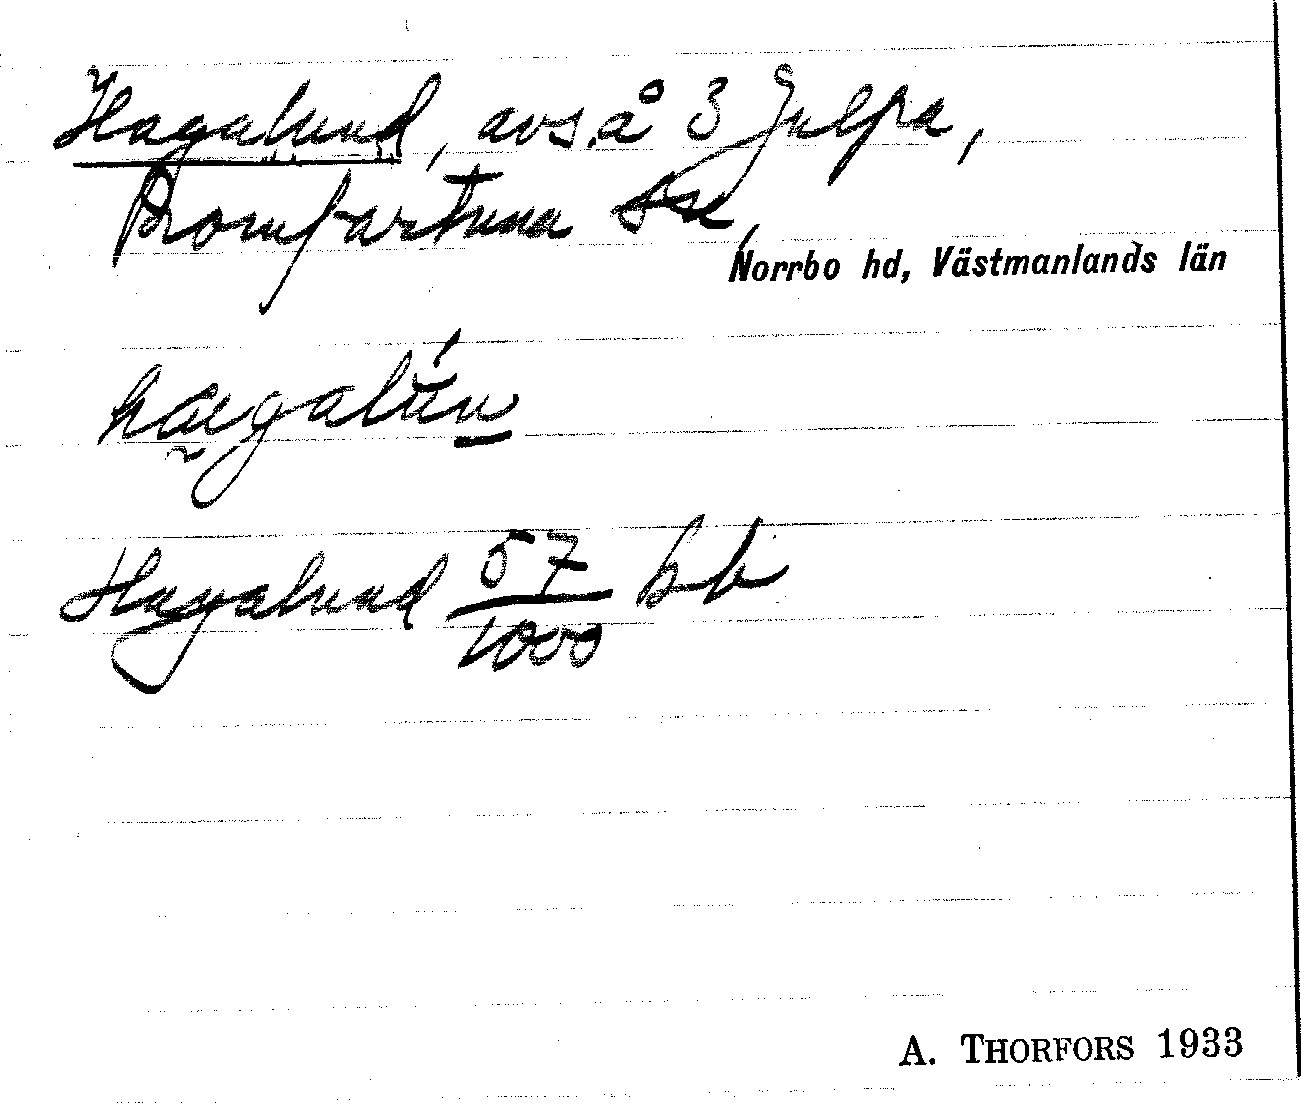 Hagalund, avs. å 3 Julpa,
Romfartuna sn,
Norrbo hd, Västmanlands län
hagalun
Hagalund 57/1000
A. THORFORS 1933